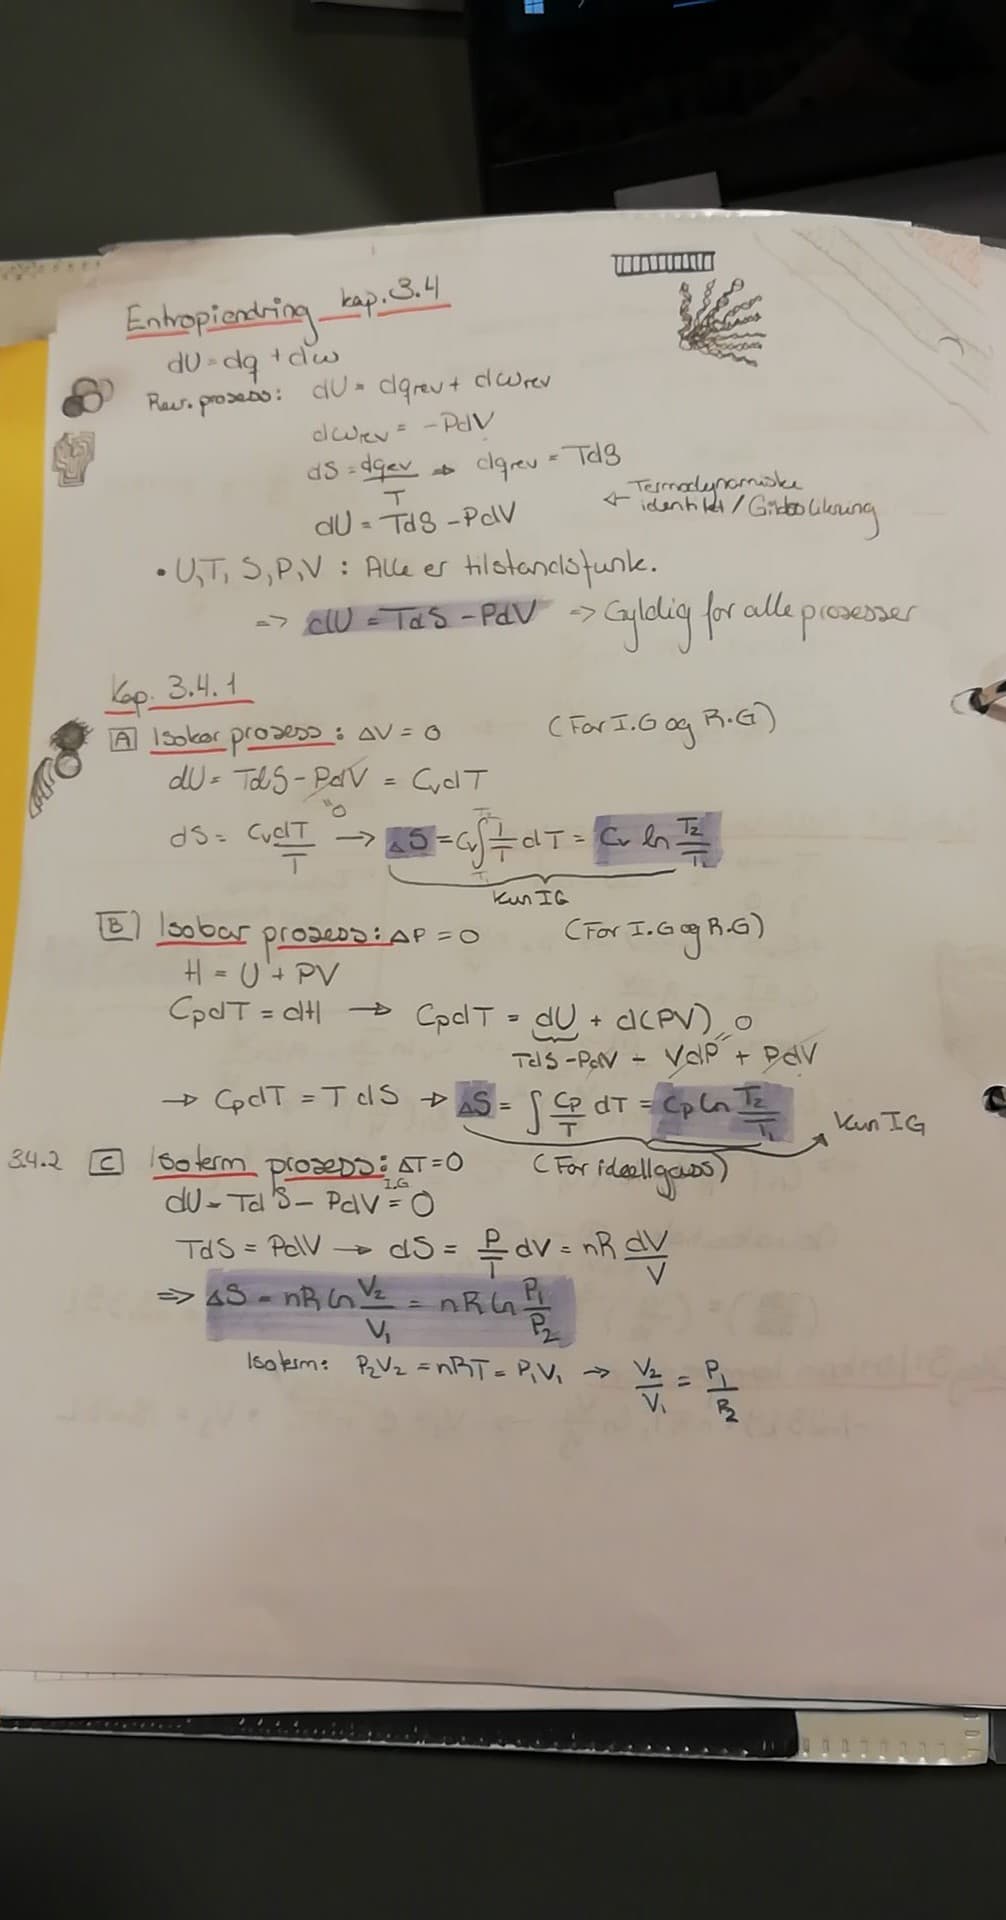 Entropiendring kap. 3.4
dU = dq + dw
Rev. prosess: dU = dqrev + dwrev
dwrev = -PdV
dS = dqrev/T ⇒ dqrev = TdS
dU = TdS - PdV ← Termodynamiske identitet / Gibbs likning
• U, T, S, P, V : Alle er tilstandsfunk.
=> dU = TdS - PdV => Gyldig for alle prosesser
Kap. 3.4.1
A Isokor prosess: ΔV = 0 (For I.G og R.G)
dU = TdS - PdV = CvdT
"0
dS = CvdT/T → ΔS = Cv∫T₁T₂ 1/T dT = Cv ln T₂/T₁
kun IG
B Isobar prosess: ΔP = 0 (For I.G og R.G)
H = U + PV
CpdT = dH → CpdT = dU + d(PV)
TdS - PdV - VdP"0 + PdV
→ CpdT = T dS → ΔS = ∫ Cp/T dT = Cp ln T₂/T₁ kun IG
3.4.2 C Isoterm prosess: ΔT = 0 (For ideell gass)
dU = TdS - PdV I.G = 0
TdS = PdV → dS = P/T dV = nR dV/V
=> ΔS = nR ln V₂/V₁ = nR ln P₁/P₂
Isoterm: P₂V₂ = nRT = P₁V₁ → V₂/V₁ = P₁/P₂